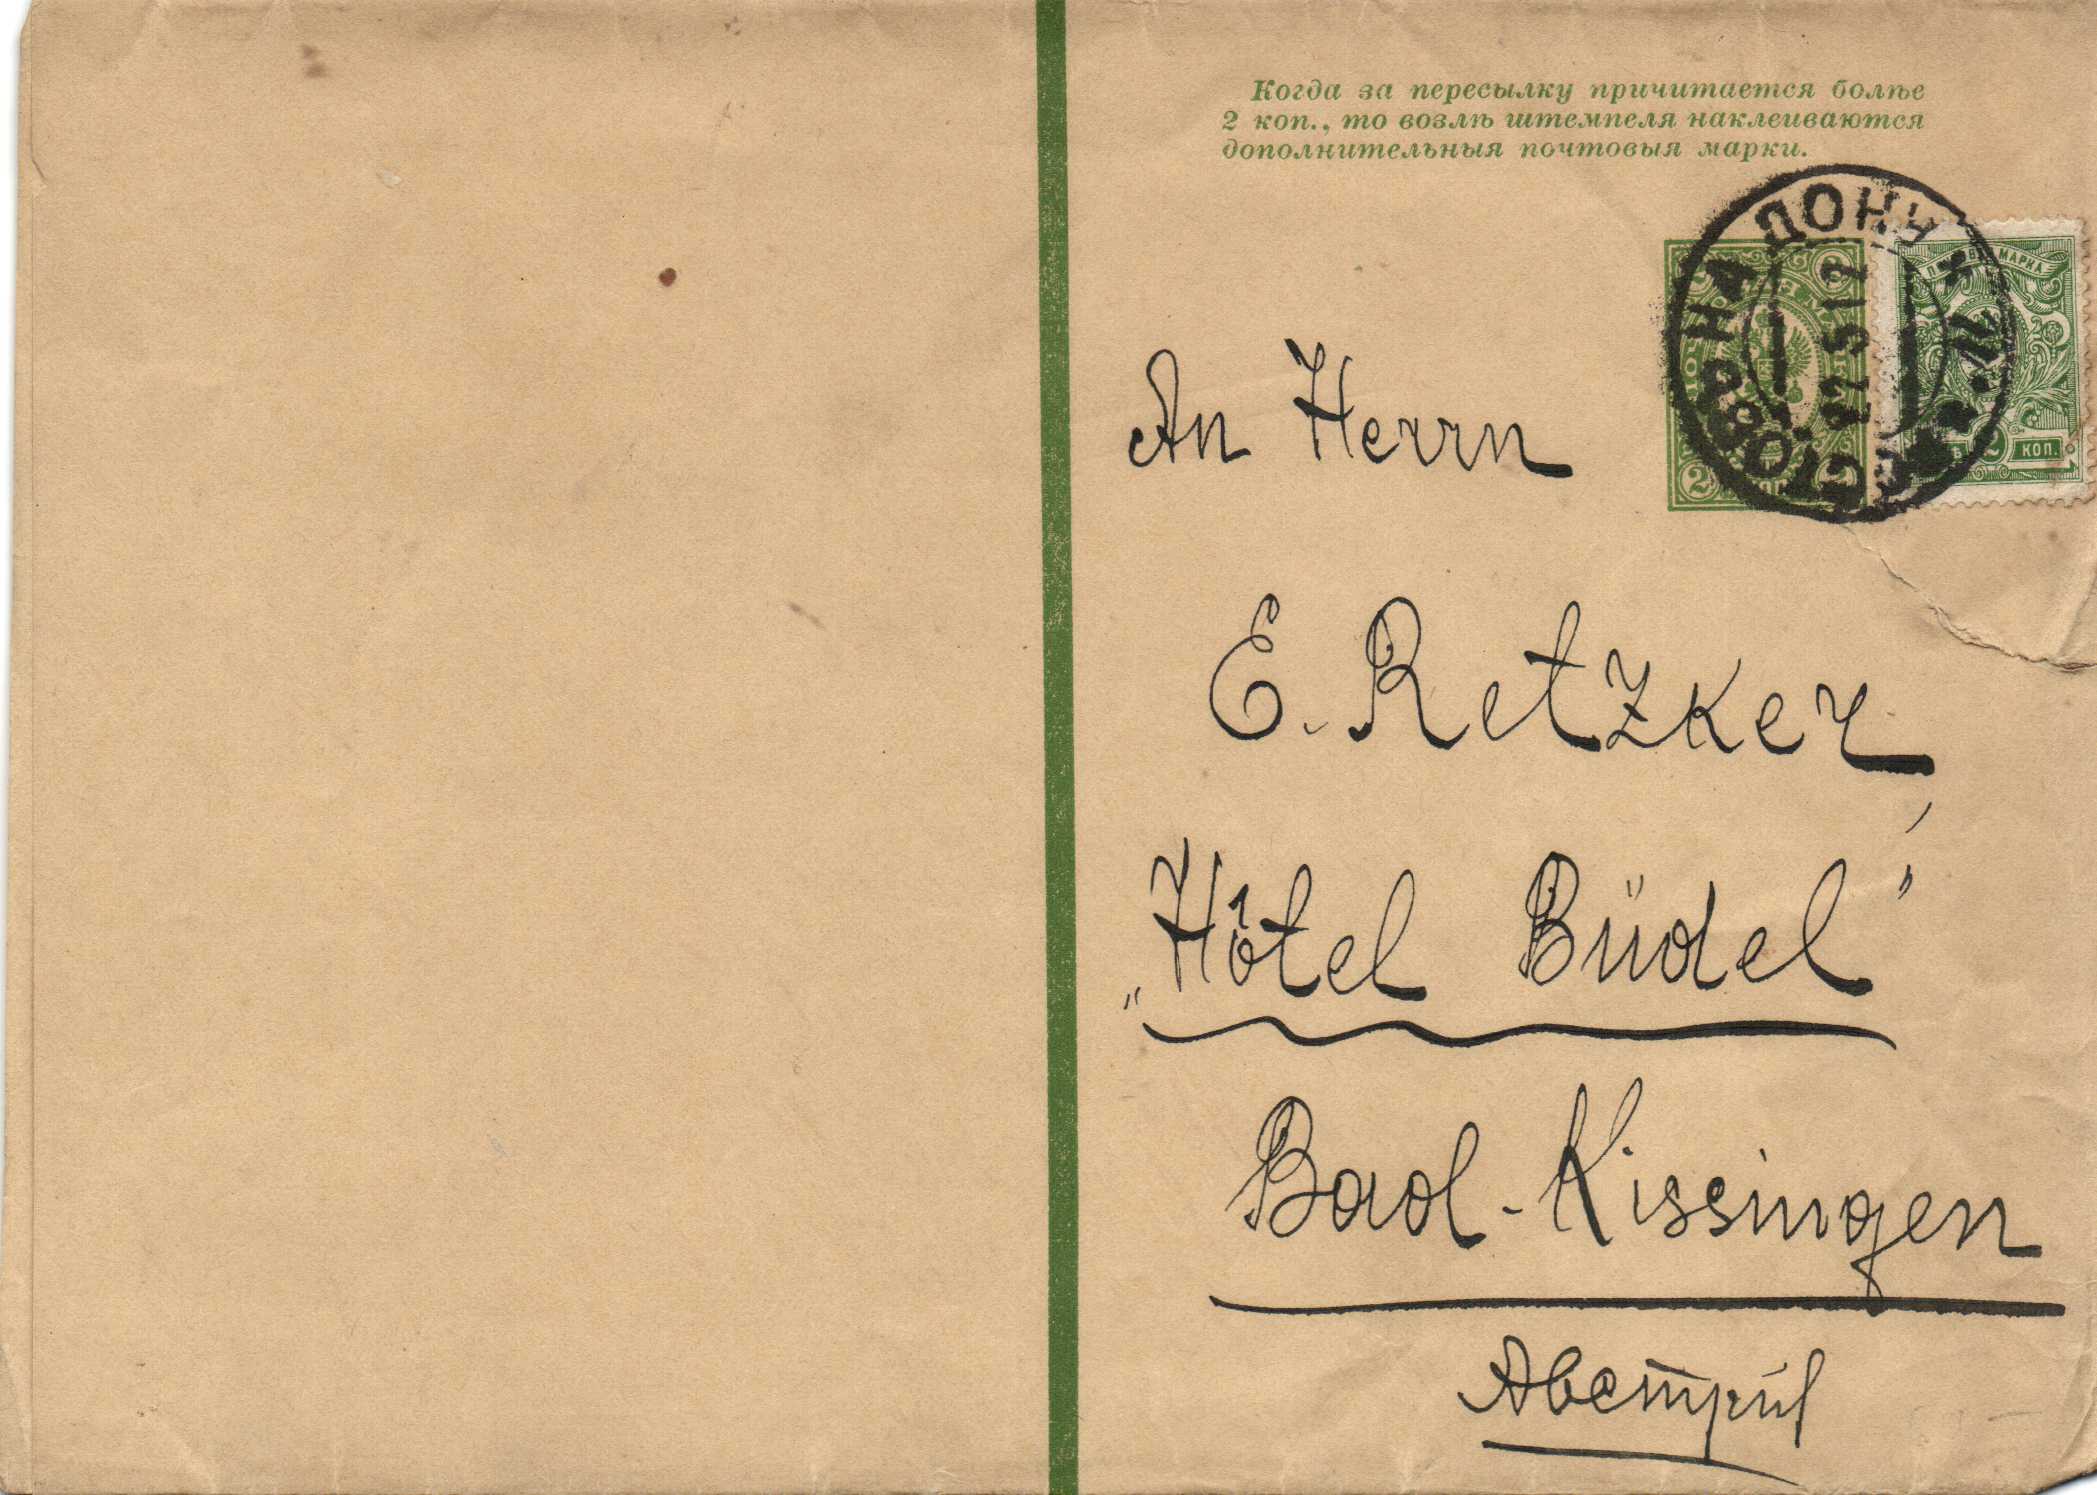 Когда за пересылку причитается болѣе
2 коп., то возлѣ штемпеля наклеиваются
дополнительныя почтовыя марки.
РОСТОВЪ НА ДОНУ
27 5 12
МАРКА
2
2 КОП.
An Herrn
E. Retzker
„Hôtel Büdel”
Bad-Kissingen
Австрія